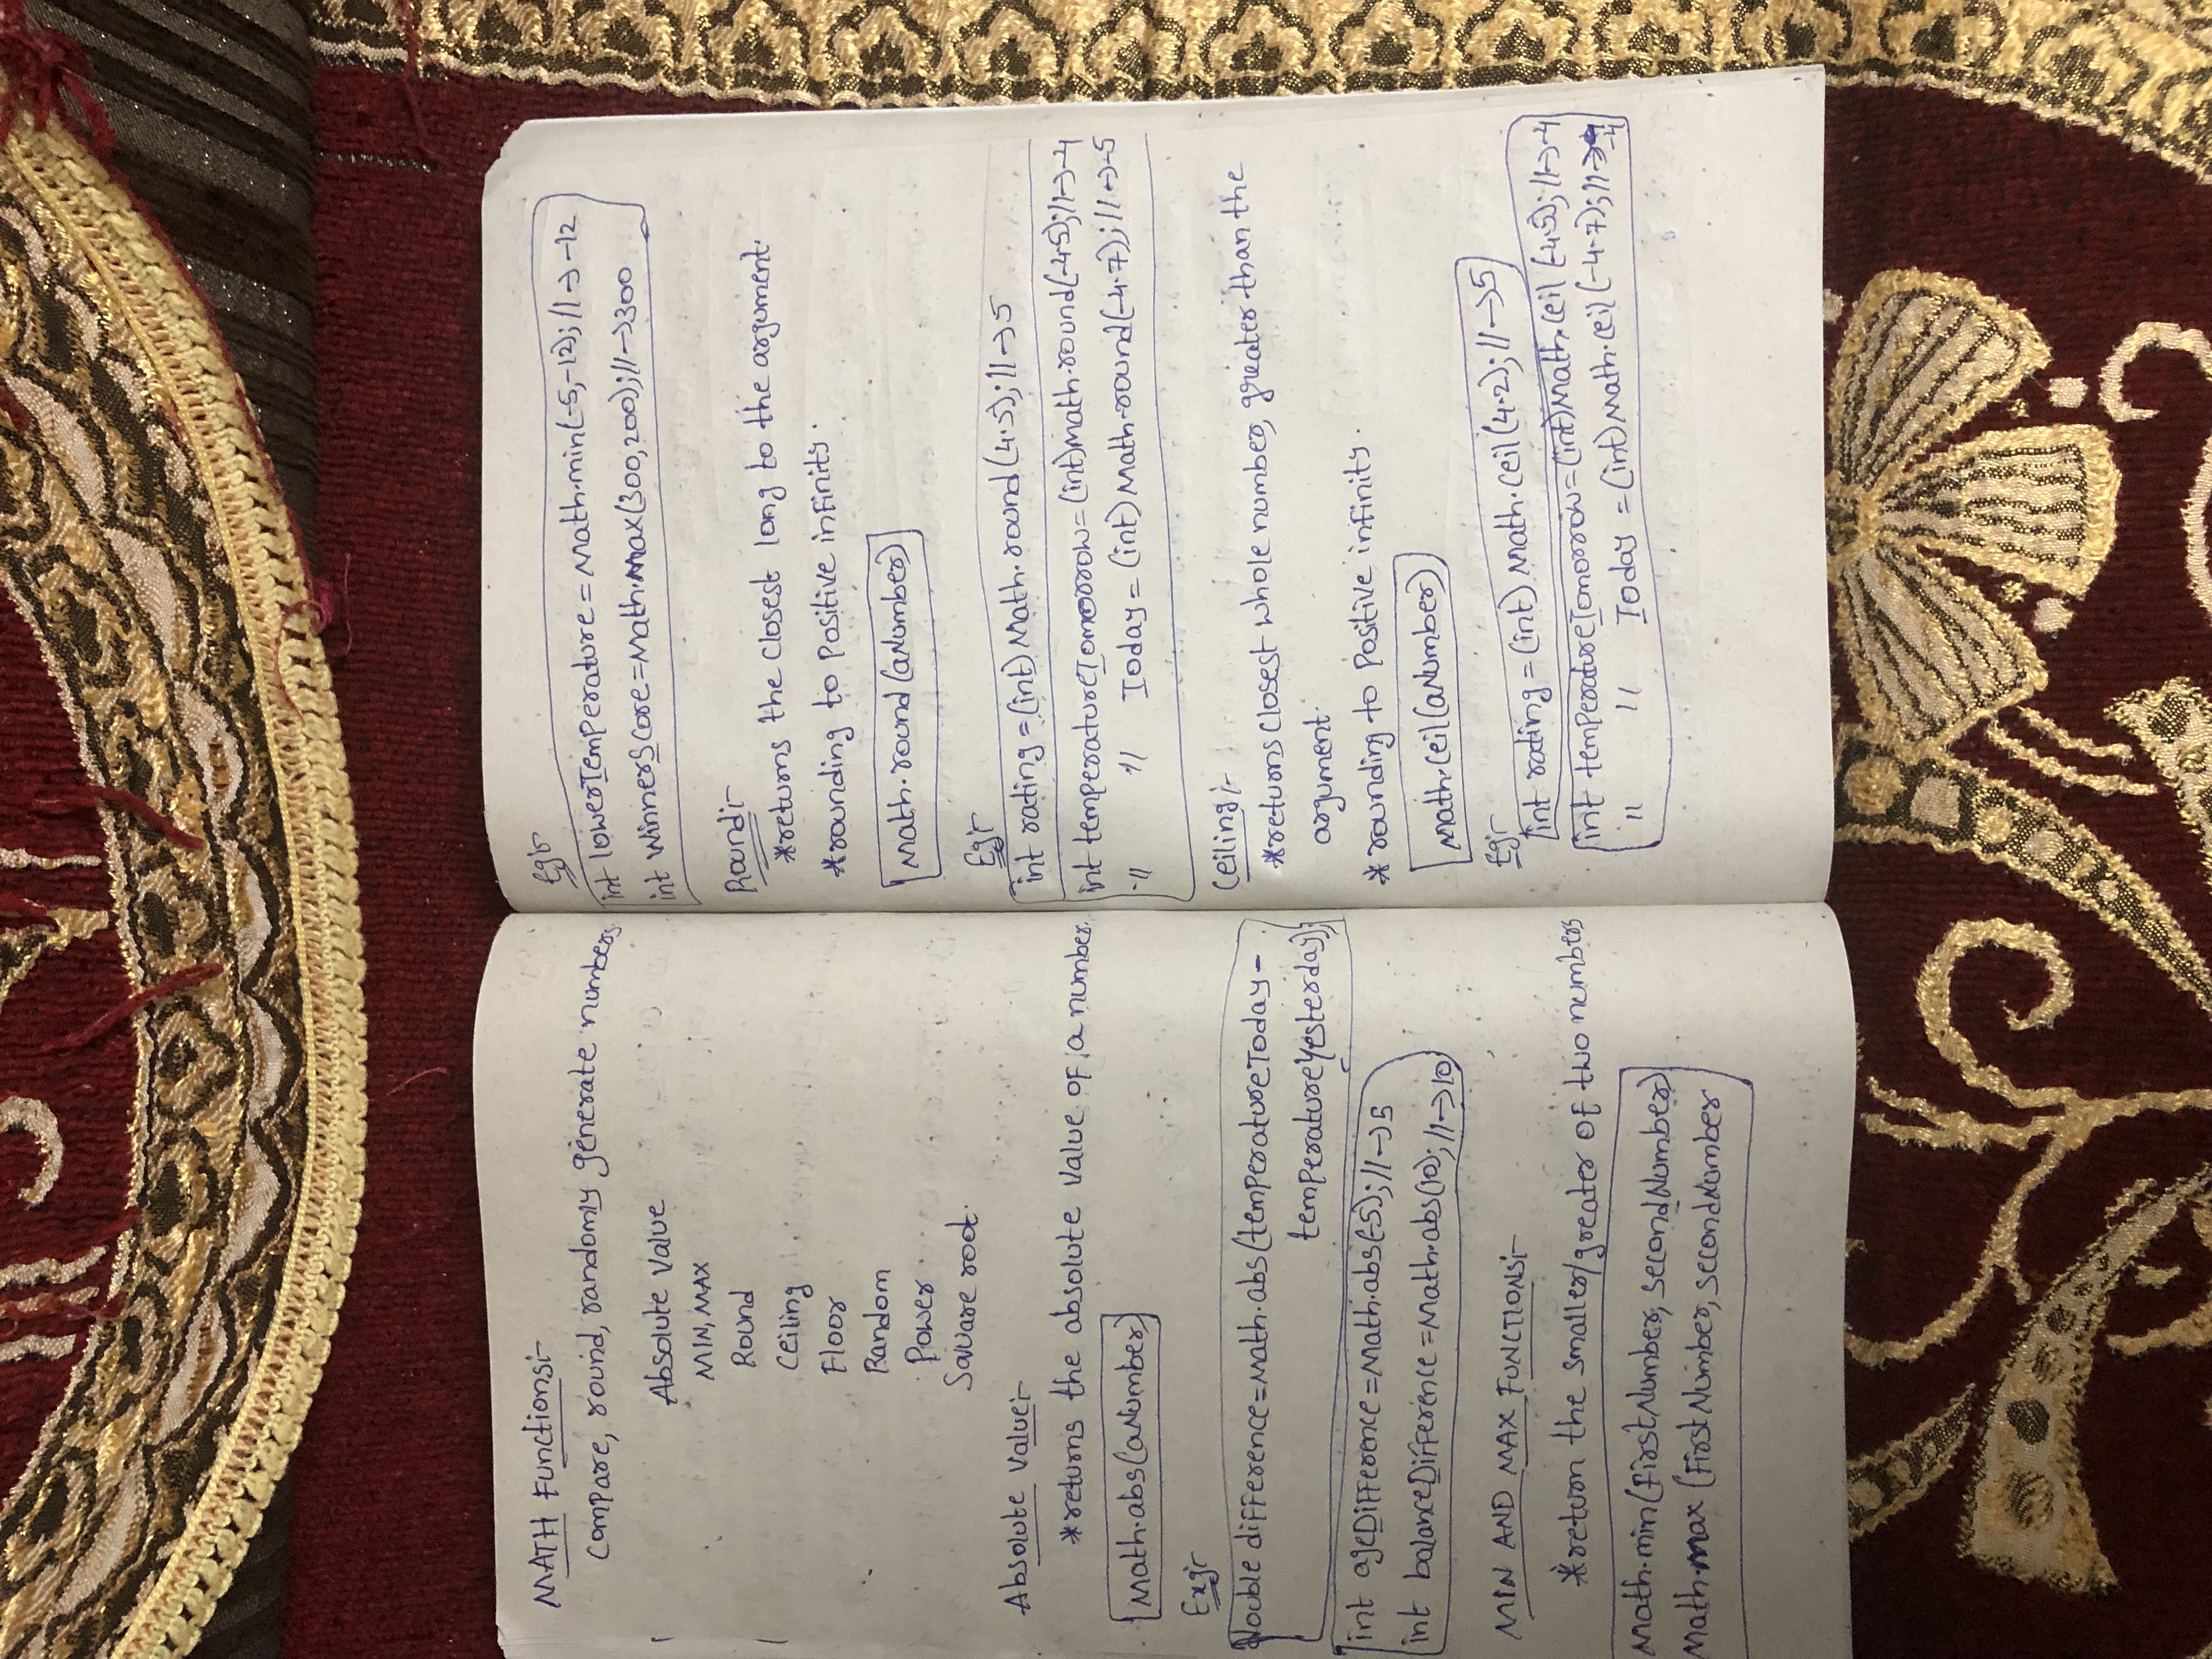 MATH Functions:-
Compare, round, randomly generate numbers
Absolute Value
MIN, MAX
Round
Ceiling
Floor
Random
Power
Square root.
Absolute Value:-
*returns the absolute value of a number.
Math.abs(aNumber)
Exg:-
double difference=Math.abs(temperatureToday-
temperatureYesterday);
int ageDifference=Math.abs(-5);//->5
int balanceDifference=Math.abs(10);//->10
MIN AND MAX FUNCTIONS:-
*return the smaller/greater of two numbers
Math.min(firstNumber, secondNumber)
Math.max (firstNumber, secondNumber
Eg:-
int lowerTemperature = Math.min(-5,-12);//->-12
int winnerScore=Math.max(300,200);//->300
Round:-
*returns the closest long to the argument.
*rounding to positive infinity.
Math.round(aNumber)
Eg:-
int rating=(int) Math.round(4.5);//->5
int temperatureTomorrow=(int)Math.round(-4.5);//->-4
" " Today=(int)Math.round(-4.7);//->-5
Ceiling:-
*returns closest whole number, greater than the
argument.
* rounding to positive infinity.
Math.ceil(aNumber)
Eg:-
int rating=(int) Math.ceil(4.2);//->5
int temperatureTomorrow=(int)Math.ceil(-4.5);//->-4
" " Today =(int)Math.ceil(-4.7);//->-4